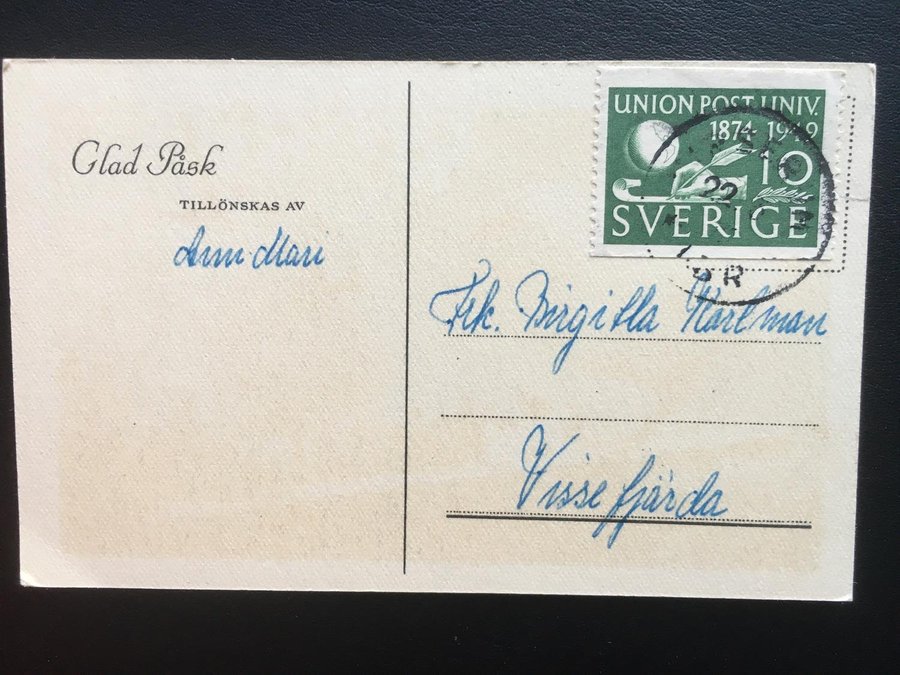 Glad Påsk
TILLÖNSKAS AV
Ann Mari
UNION POST. UNIV.
1874 1949
10
SVERIGE
22
Frk. Birgitta Karlman
Vissefjärda